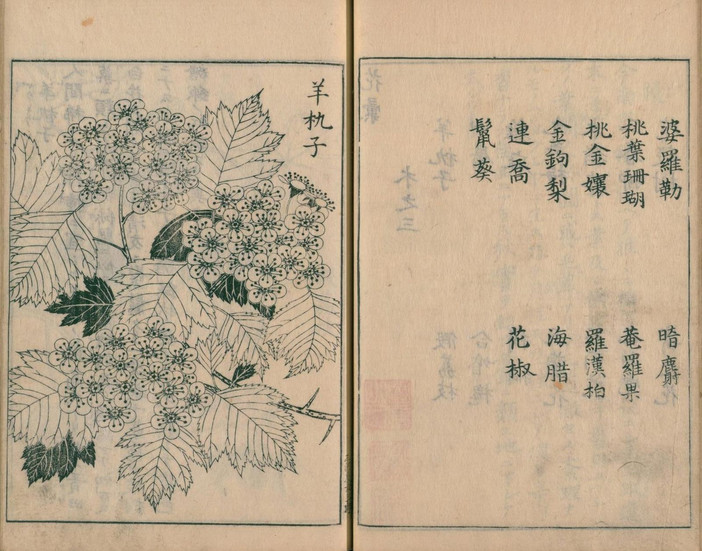 婆羅勒 暗麝
桃葉珊瑚 菴羅果
桃金孃 羅漢柏
金鉤梨 海腊
連喬 花椒
鬣葵
羊朹子